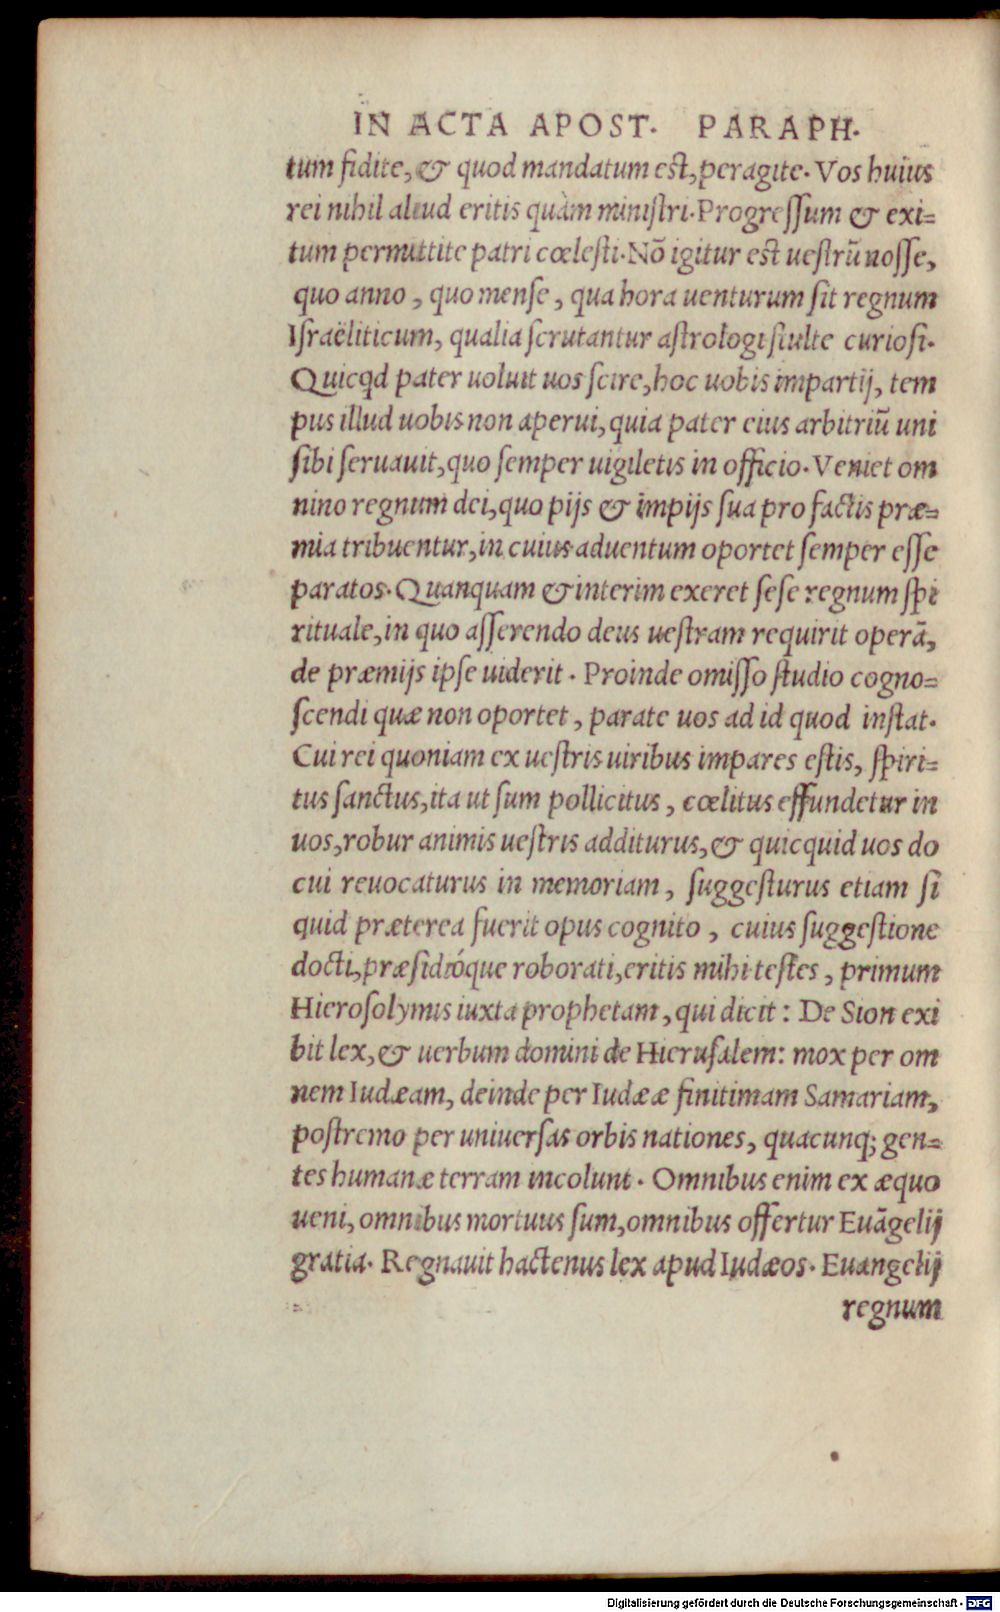 IN ACTA APOST. PARAPH.
tum fidite, & quod mandatum est, peragite. Vos huius
rei nihil aliud eritis quàm ministri. Progressum & exi=
tum permittite patri cœlesti. Nō igitur est uestrũ nosse,
quo anno, quo mense, qua hora uenturum sit regnum
Israëliticum, qualia scrutantur astrologi stulte curiosi.
Quicqd pater uoluit uos scire, hoc uobis impartij, tem
pus illud uobis non aperui, quia pater eius arbitriũ uni
sibi seruauit, quo semper uigiletis in officio. Veniet om
nino regnum dei, quo pijs & impijs sua pro factis præ=
mia tribuentur, in cuius aduentum oportet semper esse
paratos. Quanquam & interim exeret sese regnum spi
rituale, in quo asserendo deus uestram requirit operā,
de præmijs ipse uiderit. Proinde omisso studio cogno=
scendi quæ non oportet, parate uos ad id quod instat.
Cui rei quoniam ex uestris uiribus impares estis, spiri=
tus sanctus, ita ut sum pollicitus, cœlitus effundetur in
uos, robur animis uestris additurus, & quicquid uos do
cui reuocaturus in memoriam, suggesturus etiam si
quid præterea fuerit opus cognito, cuius suggestione
docti, præsidióque roborati, eritis mihi testes, primum
Hierosolymis iuxta prophetam, qui dicit: De Sion exi
bit lex, & uerbum domini de Hierusalem: mox per om
nem Iudæam, deinde per Iudææ finitimam Samariam,
postremo per uniuersas orbis nationes, quacunq; gen=
tes humanæ terram incolunt. Omnibus enim ex æquo
ueni, omnibus mortuus sum, omnibus offertur Euāgelij
gratia. Regnauit hactenus lex apud Iudæos. Euangelij
regnum
Digitalisierung gefördert durch die Deutsche Forschungsgemeinschaft - DFG